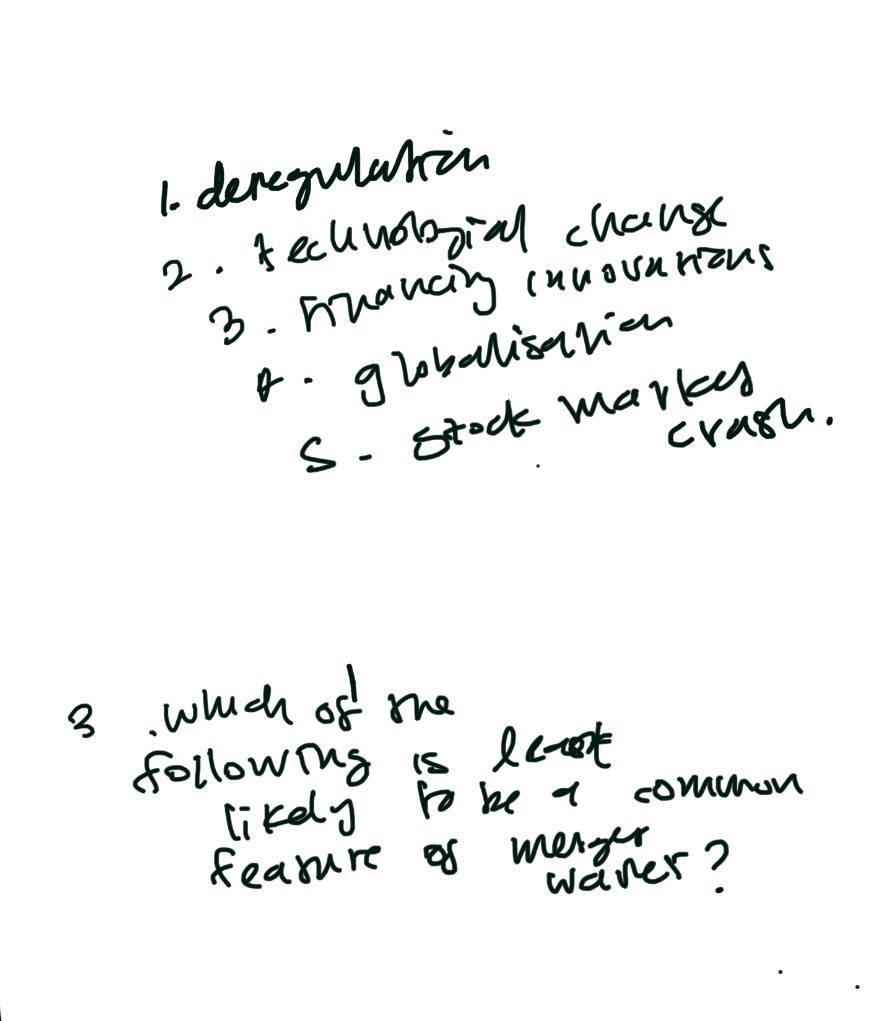 1. deregulation
2. technological change
3. Financing innovations
4. globalisation
5. stock market
crash.
3 .which of the
following is least
likely to be a common
feature of merger
waves?